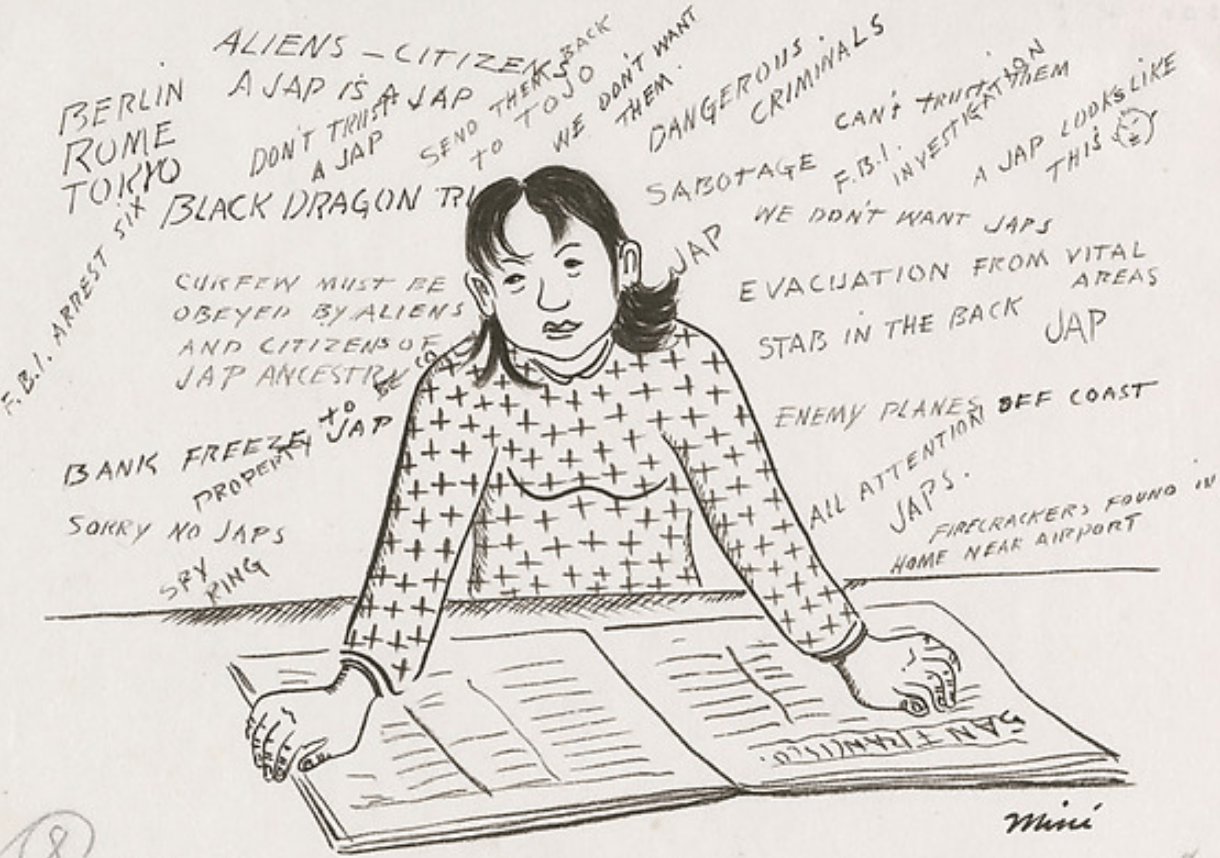 BERLIN
ROME
TOKYO
ALIENS - CITIZENS
A JAP IS A JAP
DON'T TRUST
A JAP
SEND THEM BACK
TO TOJO
WE DON'T WANT
THEM.
DANGEROUS.
CRIMINALS
CAN'T TRUST THEM
F.B.I.
INVESTIGATION
A JAP LOOKS LIKE
THIS
BLACK DRAGON
SABOTAGE
WE DON'T WANT JAPS
JAP
F.B.I. ARREST SIX
CURFEW MUST BE
OBEYED BY ALIENS
AND CITIZENS OF
JAP ANCESTRY
EVACUATION FROM VITAL
AREAS
STAB IN THE BACK
JAP
BANK FREEZE JAP
PROPERTY TO BE
ENEMY PLANES OFF COAST
ALL ATTENTION
JAPS.
SORRY NO JAPS
SPY
RING
FIRECRACKERS FOUND IN
HOME NEAR AIRPORT
SAN FRANCISCO.
Miné
8